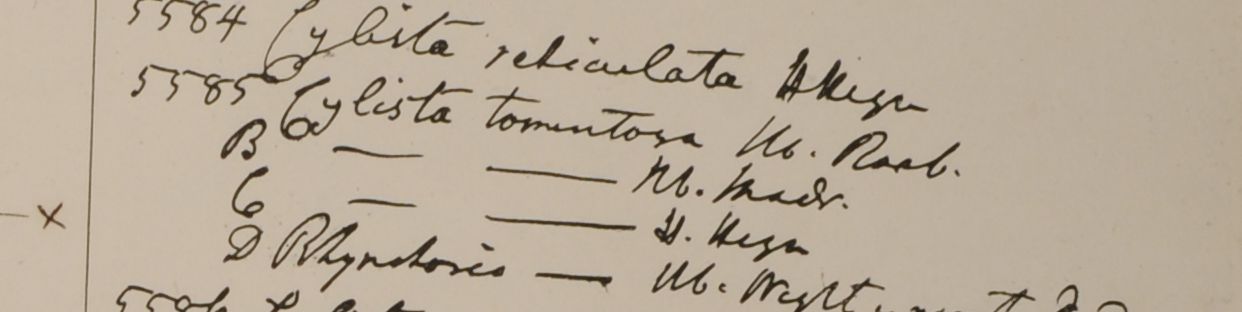 5584 Cylista reticulata H Heyn
5585 Cylista tomentosa Hb. Roxb.
B — — Hb. Madr.
C — — H. Heyn
D Rhynchosia — Hb. Wight
5586